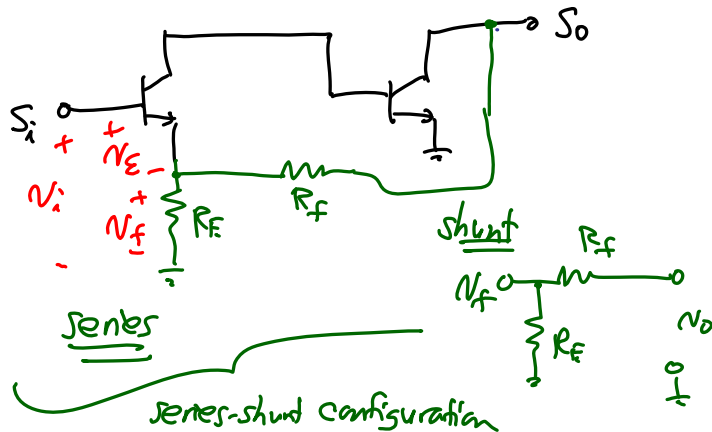 So
Si
+
+
Vε
-
Vi
+
Vf
-
-
RE
Rf
shunt
Rf
Vf
RE
Vo
series
series-shunt configuration